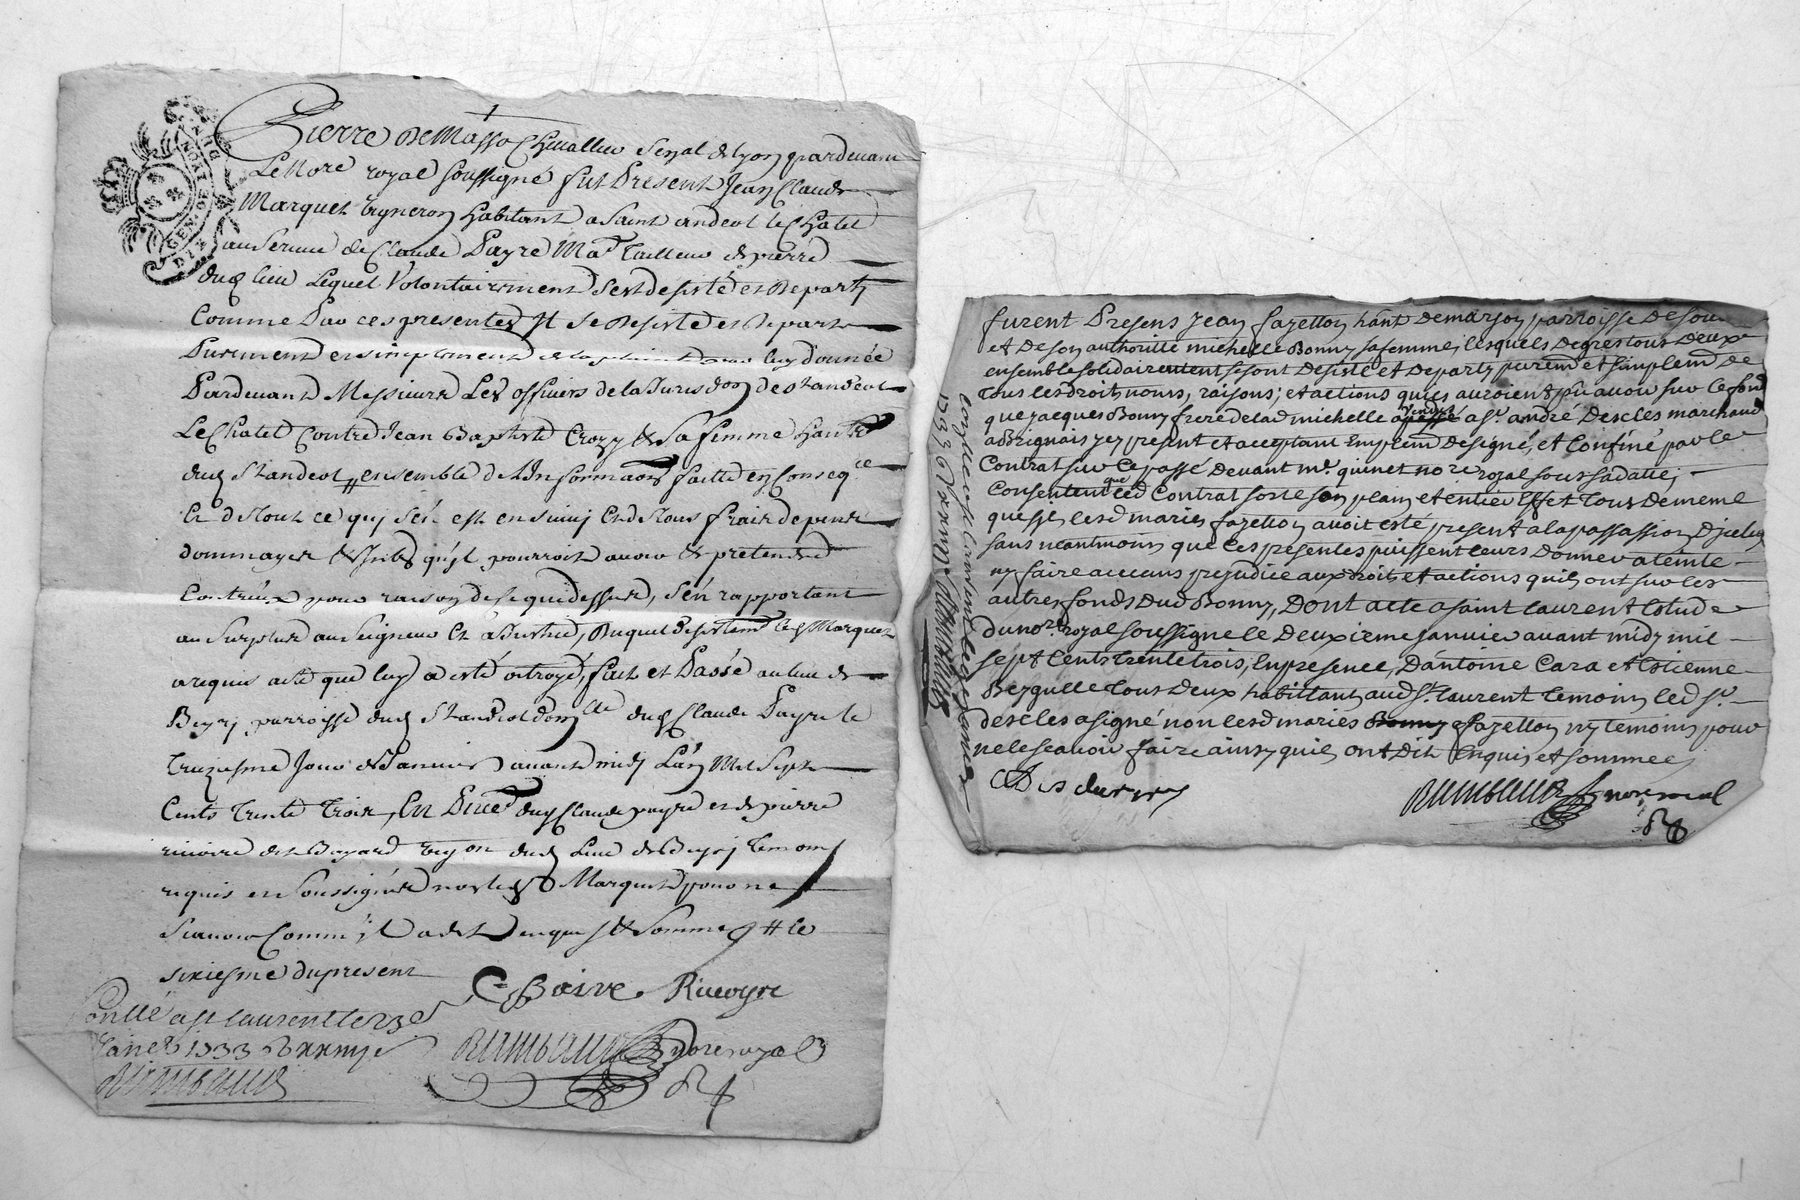 GEN. DE LYON
Pierre De Masso Chevallier Senal de lyon pardevant
Le Nore royal soussigné fut Present Jean Claude
Marquet vigneron habitant a Saint andeol le Chatel
au Service de Claude Payre Md Tailleur de pierre
dud lieu Lequel Volontairement s'est desisté et Departy
Comme Par ces presentes Il se Desiste et Depart
Purement et simplement de la plainte par luy donnée
Pardevant Messieurs Les officiers de la Jurisdon de st andeol
Le Chatel Contre Jean Baptiste Crozy & Sa femme hants
dud St andeol ensemble de L'Informaon faitte en Conseqce
Et de tout ce qui s'en est ensuivi Et de tous frais depens
dommages & Intts qu'il pourroit avoir & pretendre
Contr'eux pour raison de ce que dessus, s'en rapportant
au Surplus au Seigneur Et a Justice, Duquel desistemt led Marquet
a requis acte que luy a esté octroyé, fait et Passé au lieu de
parroisse dud St andeol dom.lle dud Claude Payre le
Treziesme Jour de Janvier avant midy L'an Mil Sept
Cents Trente Trois, En Pnce dud Claude payre et de pierre
riuoire dit Bayard vigon dud Lieu de temoins
requis et Soussignés non led Marquet pour ne
Scavoir Comme il a dit enquis & Sommé # le
sixiesme du present
C Paire Riuoyre
Conllé a st laurent le 23e
Janer 1733 R
Rimbaud
Rimbaud nore royal
furent Presens Jean fazetton hant De marjon parroisse De
et De son authorité michelle Bonny sa femme, lesquels De gres tous Deux
ensemble solidairement se sont Desisté et Departy purem̅t et simplem̅t de
Tous les droits, noms, raisons, et actions qu'ils auroient pû avoir sur le fond
que jacques Bonny frere de lad michelle vendu a sr. andré Descles marchand
a Brignais icy present et acceptant Emplem̅t designé, et Confiné par le
Contrat sur ce passé Devant me. quinet nore royal sous sa datte,
Consentent que led Contrat sorte son plain et entier Effet tout De meme
que sy lesd mariés fazetton avoit esté present a la passation D'jceluy
sans neantmoins que ces presentes puissent leurs Donner ateinte
ny faire aucuns prejudice aux droits et actions qu'ils ont sur les
autres fonds Dud Bonny, Dont acte a saint laurent Etude
du nore. royal soussigné le Deuxieme janvier avant midy mil
sept Cents trente trois, En presence, D'antoine Cara et Estienne
tous Deux habittants aud St. laurent temoins led sr.
descles a signé non lesd mariés fazetton ny temoins pour
ne le scavoir faire ainsy qu'ils ont dit Enquis et sommés
Descles
Rimbaud nore royal
1733